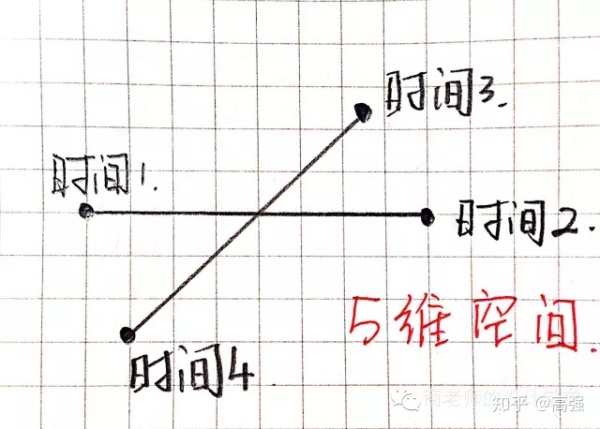 时间3.
时间1.
时间2.
5维空间.
时间4
知乎 @高强